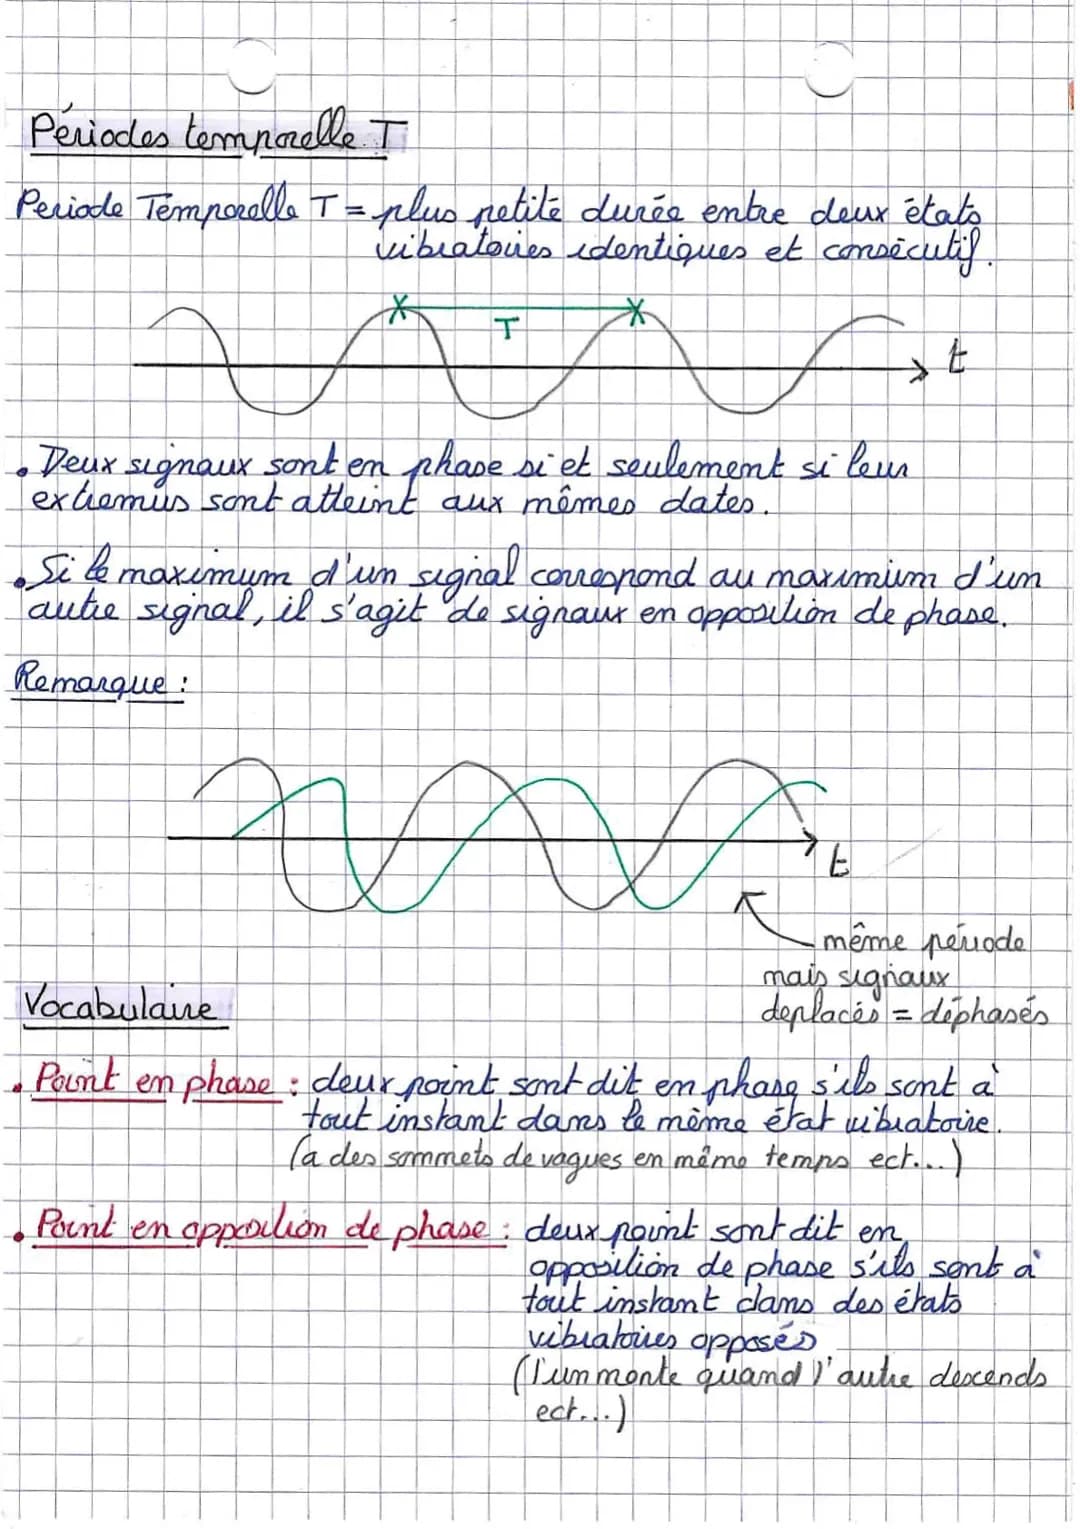 Périodes temporelle T
Periode Temporelle T = plus petite durée entre deux états
vibratoires identiques et consécutif.
T
t
• Deux signaux sont en phase si et seulement si leur
extremus sont atteint aux mêmes dates.
• Si le maximum d'un signal correspond au maximum d'un
autre signal, il s'agit de signaux en opposition de phase.
Remarque :
t
même période
mais signaux
deplacés = déphasés
Vocabulaire
• Point en phase : deux point sont dit en phase s'ils sont à
tout instant dans le même état vibratoire.
(a des sommets de vagues en même temps ect...)
• Point en opposition de phase : deux point sont dit en
opposition de phase s'ils sont à
tout instant dans des états
vibratoires opposés
(l'un monte quand l'autre descends
ect...)